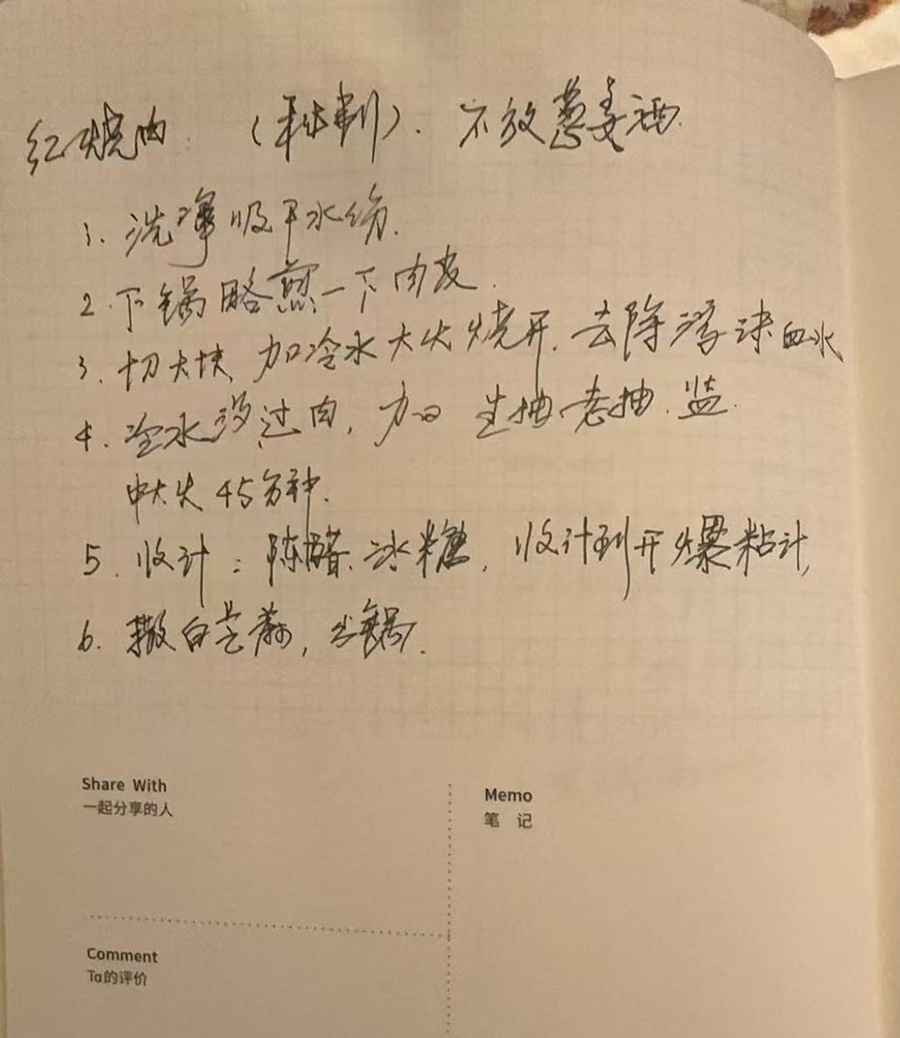 红烧肉. (秘制). 不放葱姜酒.
1. 洗净吸干水份.
2. 下锅略煎一下肉皮.
3. 切大块, 加冷水大火烧开. 去除浮沫血水
4. 冷水没过肉, 加 生抽老抽. 盐.
中大火 45分钟.
5. 收汁: 陈醋. 冰糖, 收汁到开爆粘汁,
6. 撒白芝麻, 出锅.
Share With
一起分享的人
Memo
笔 记
Comment
Ta的评价